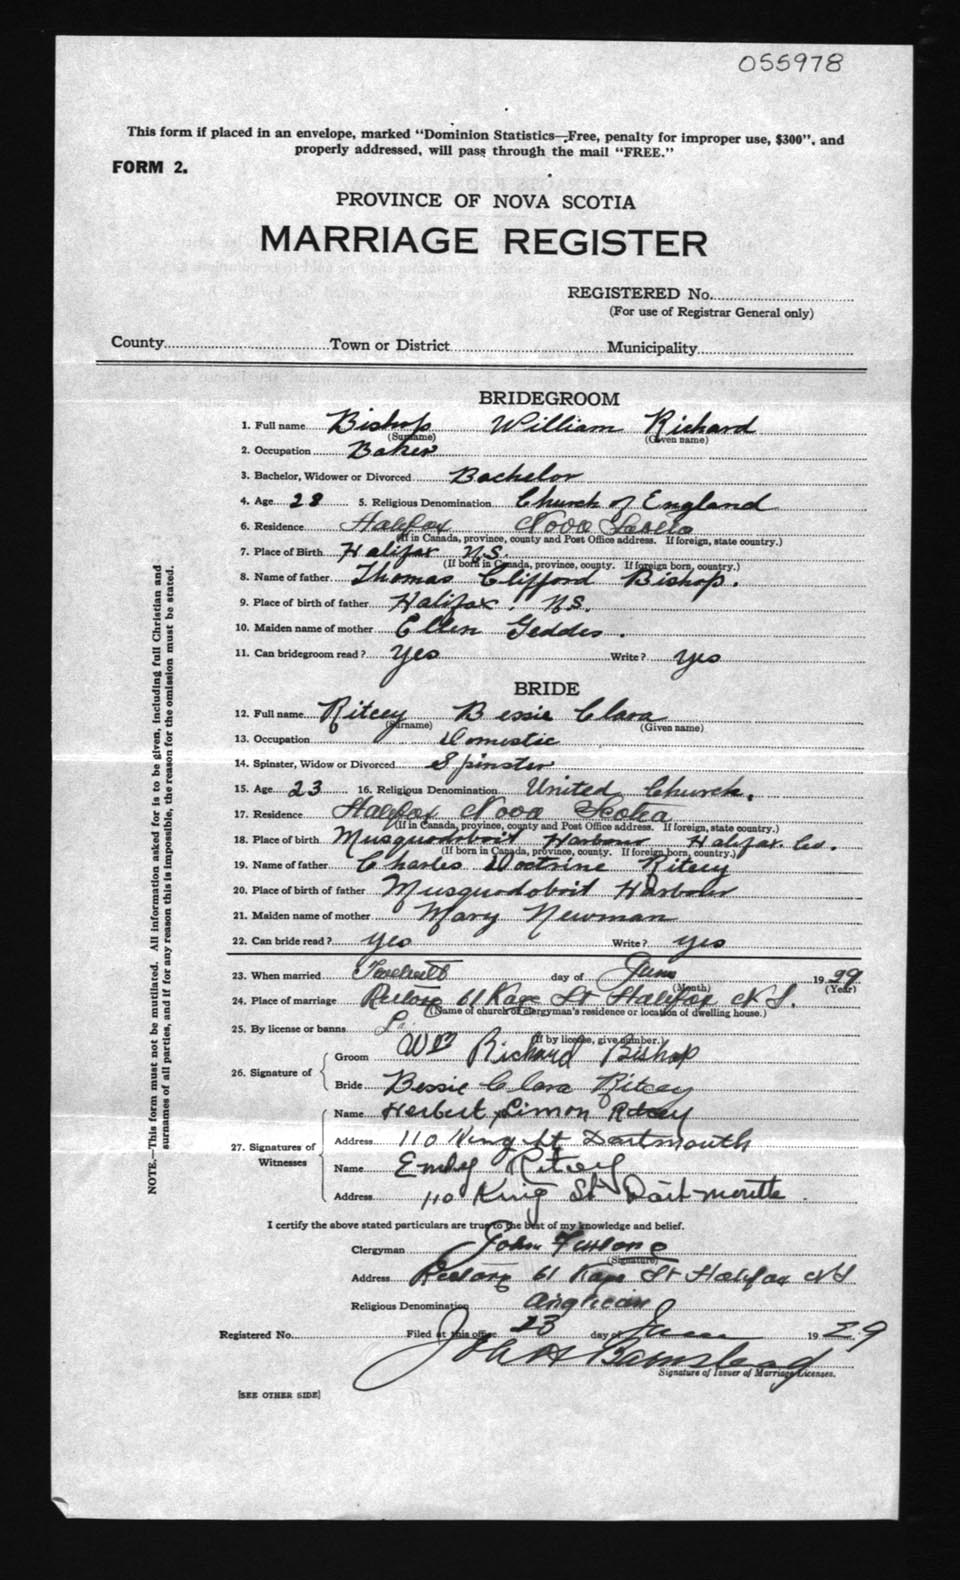 055978
This form if placed in an envelope, marked "Dominion Statistics—Free, penalty for improper use, $300", and
properly addressed, will pass through the mail "FREE."
FORM 2.
PROVINCE OF NOVA SCOTIA
MARRIAGE REGISTER
REGISTERED No.
(For use of Registrar General only)
County Town or District Municipality
BRIDEGROOM
1. Full name Bishop William Richard
(Surname) (Given name)
2. Occupation Baker
3. Bachelor, Widower or Divorced Bachelor
4. Age 28 5. Religious Denomination Church of England
6. Residence Halifax Nova Scotia
(If in Canada, province, county and Post Office address. If foreign, state country.)
7. Place of Birth Halifax N.S.
(If born in Canada, province, county. If foreign born, country.)
8. Name of father Thomas Clifford Bishop.
9. Place of birth of father Halifax. N.S.
10. Maiden name of mother Ellen Geddes.
11. Can bridegroom read? Yes Write? Yes
BRIDE
12. Full name Ritcey Bessie Clara
(Surname) (Given name)
13. Occupation Domestic
14. Spinster, Widow or Divorced Spinster
15. Age 23 16. Religious Denomination United Church.
17. Residence Halifax Nova Scotia
(If in Canada, province, county and Post Office address. If foreign, state country.)
18. Place of birth Musquodoboit Harbour Halifax Co.
(If born in Canada, province, county. If foreign born, country.)
19. Name of father Charles Ritcey
20. Place of birth of father Musquodoboit Harbour
21. Maiden name of mother Mary Newman
22. Can bride read? Yes Write? Yes
23. When married day of June 1929
(Month) (Year)
24. Place of marriage 61 Kaye St Halifax N.S.
(Name of church of clergyman's residence or location of dwelling house.)
25. By license or banns
(If by license, give number.)
26. Signature of
Groom Wm Richard Bishop
Bride Bessie Clara Ritcey
27. Signatures of Witnesses
Name Herbert Simon Ritcey
Address 110 King St Dartmouth
Name Emily Ritcey
Address 110 King St Dartmouth.
I certify the above stated particulars are true to the best of my knowledge and belief.
Clergyman John Furlong
(Signature)
Address 61 Kaye St Halifax N.S
Religious Denomination Anglican
Registered No. Filed at this office 23 day of June 1929
Signature of Issuer of Marriage Licenses.
[SEE OTHER SIDE]
NOTE.—This form must not be mutilated. All information asked for is to be given, including full Christian and
surnames of all parties, and if for any reason this is impossible, the reason for the omission must be stated.